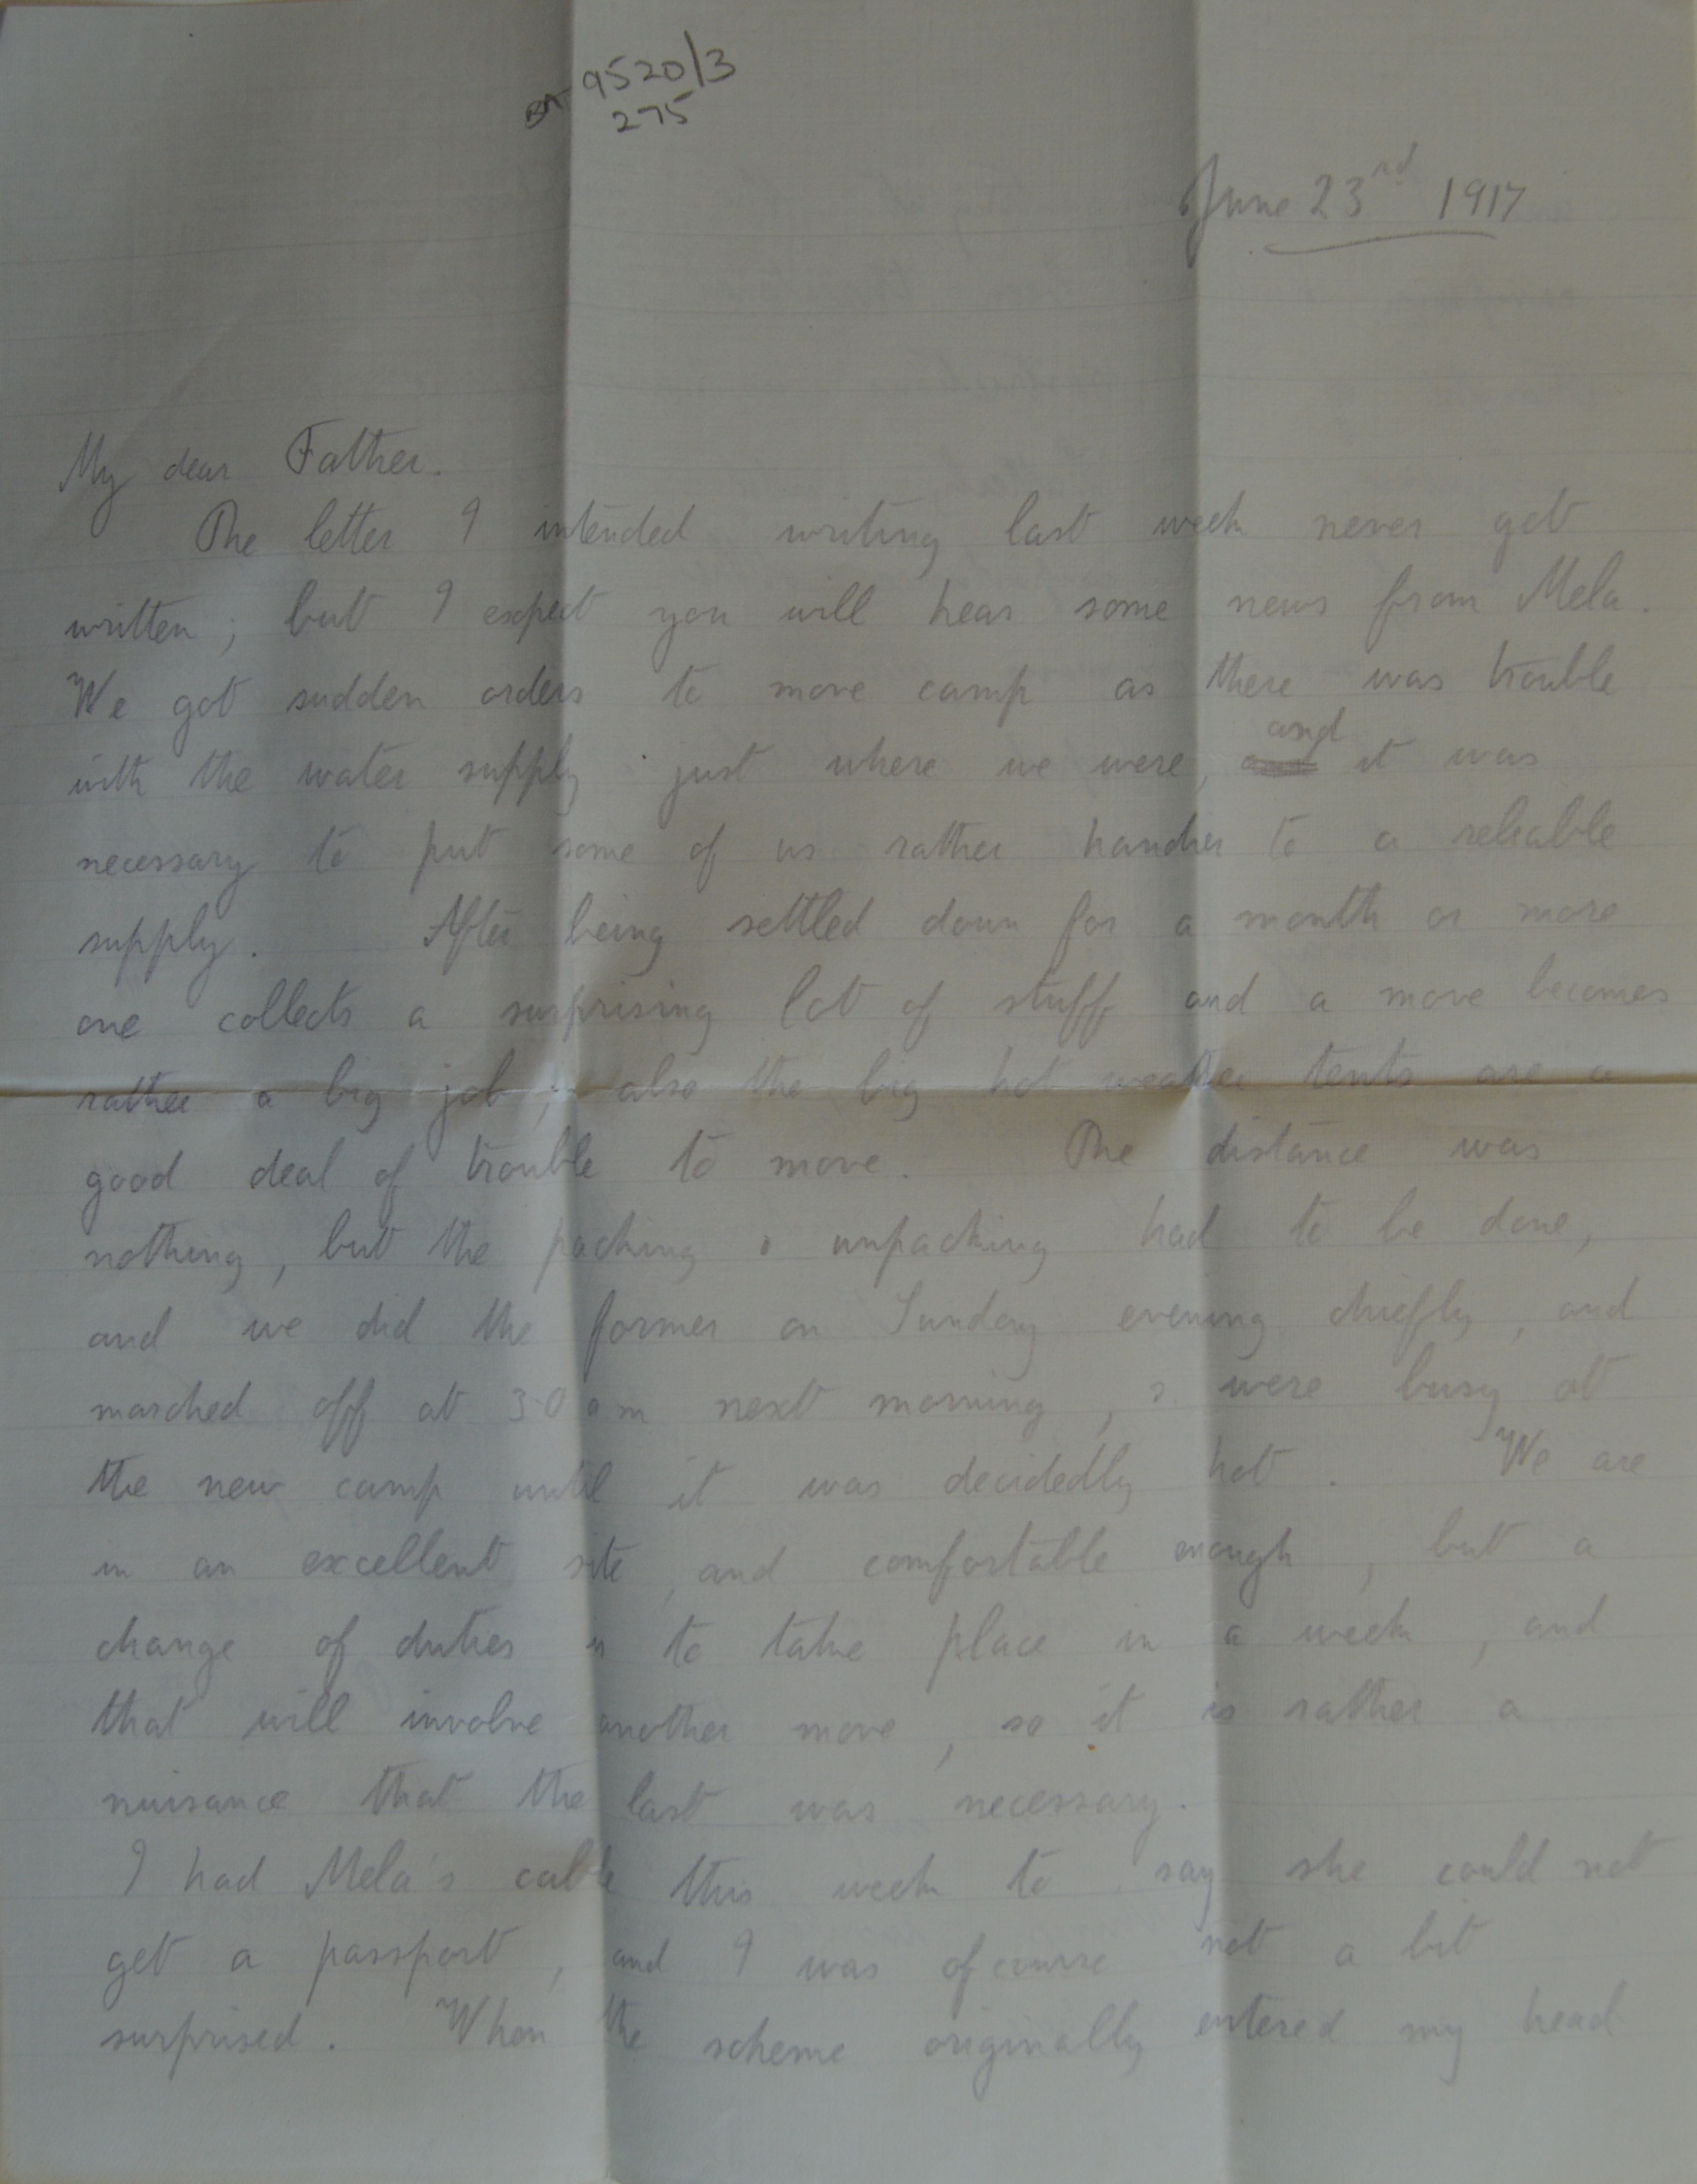 9520/3
275
June 23rd 1917
My dear Father.
The letter I intended writing last week never got
written; but I expect you will hear some news from Mela.
We got sudden orders to move camp as there was trouble
with the water supply just where we were, and it was
necessary to put some of us rather handier to a reliable
supply. After being settled down for a month or more
one collects a surprising lot of stuff and a move becomes
rather a big job; also the big hot weather tents are a
good deal of trouble to move. The distance was
nothing, but the packing & unpacking had to be done,
and we did the former on Sunday evening chiefly, and
marched off at 3.0 am next morning, & were busy at
the new camp until it was decidedly hot. We are
in an excellent site, and comfortable enough, but a
change of duties is to take place in a week, and
that will involve another move, so it is rather a
nuisance that the last was necessary.
I had Mela's cable this week to say she could not
get a passport, and I was of course not a bit
surprised. When the scheme originally entered my head